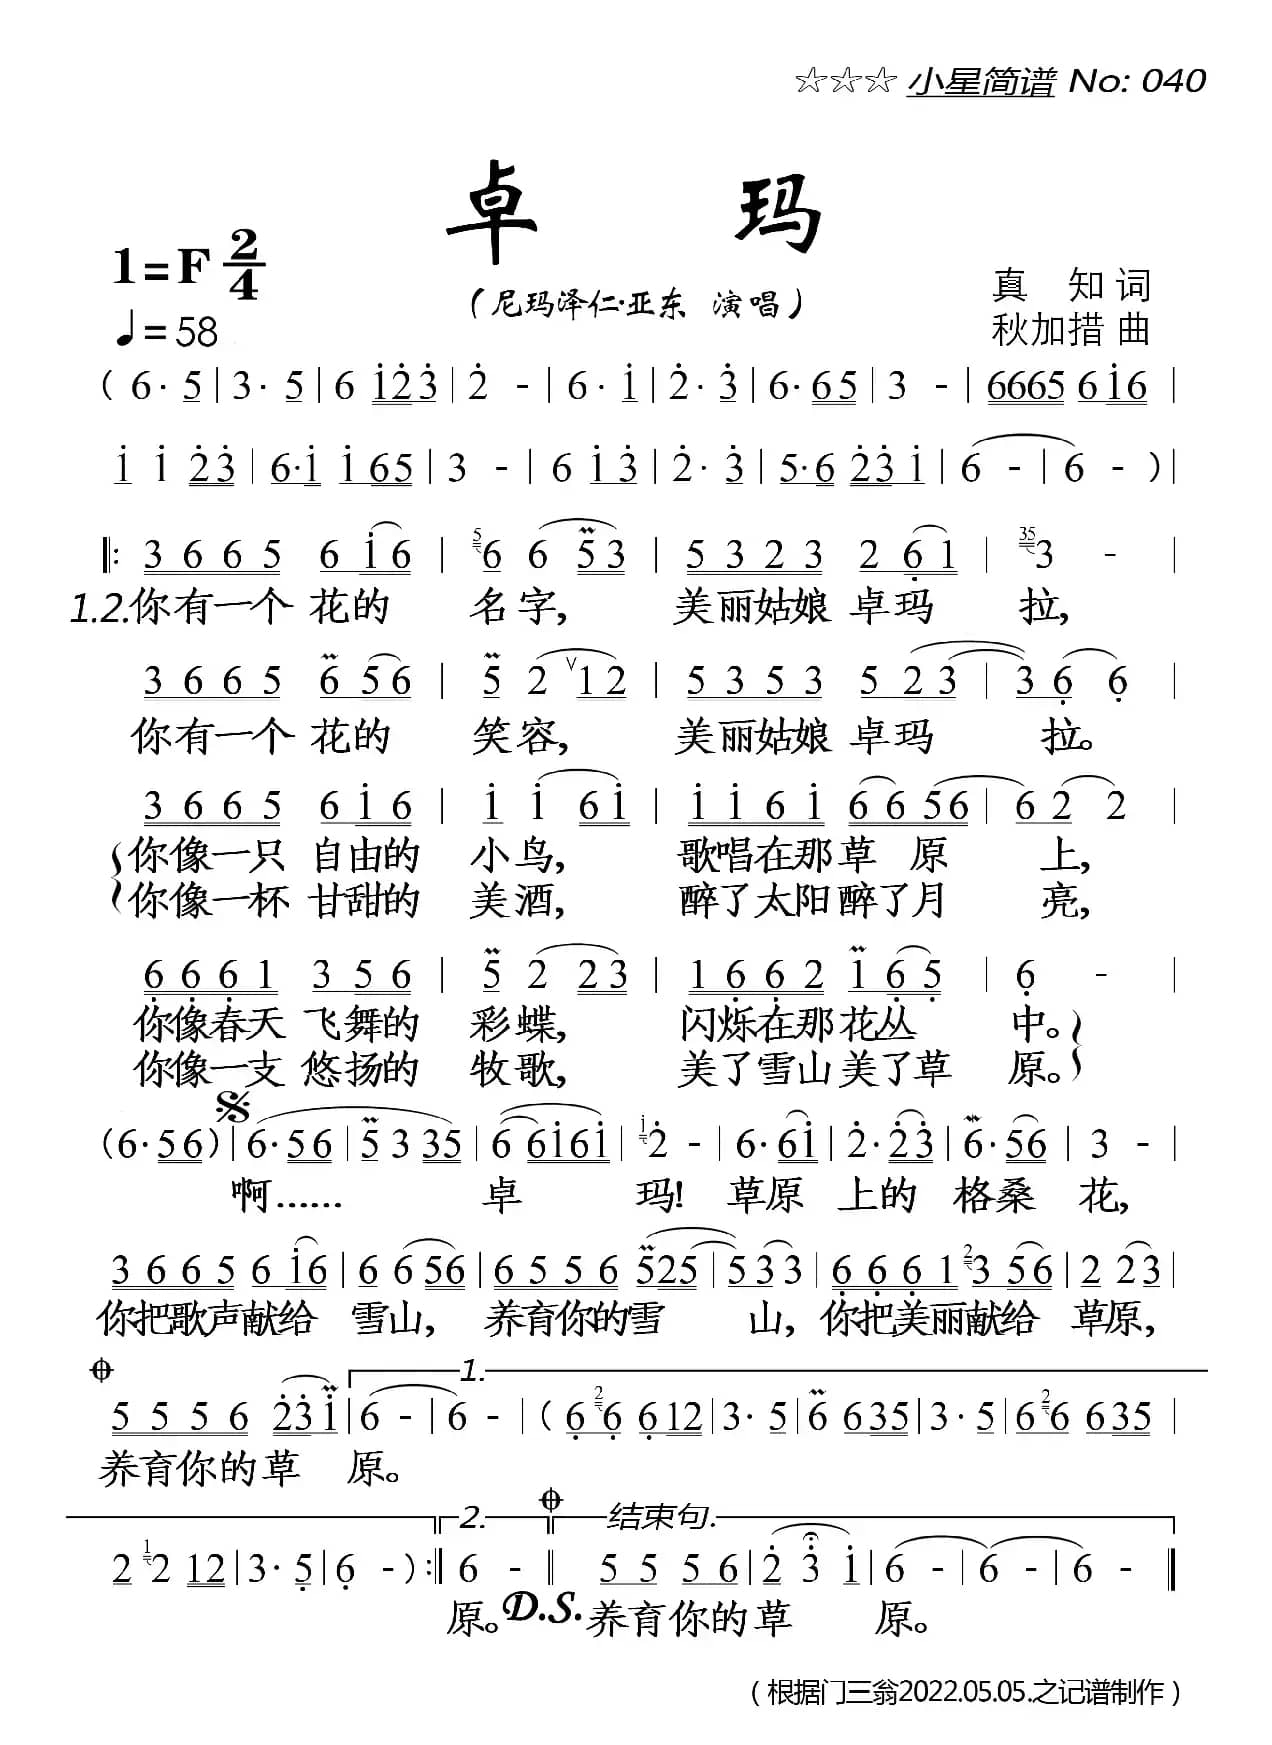 ☆☆☆ 小星简谱 No: 040
卓 玛
1=F 2/4
(尼玛泽仁·亚东 演唱)
真 知 词
♩=58
秋加措 曲
( 6· 5 | 3· 5 | 6 1̇2̇3̇ | 2̇ - | 6· 1̇ | 2̇· 3̇ | 6· 65 | 3 - | 6665 61̇6 |
1̇ 1̇ 2̇3̇ | 6·1̇ 1̇65 | 3 - | 6 1̇3̇ | 2̇· 3̇ | 5·6 2̇3̇1̇ | 6 - | 6 - ) |
‖: 3 6 6 5 6 1̇ 6 | 5 6 6 5 3 | 5 3 2 3 2 6̣ 1 | 35 3 - |
1.2.你有一个 花的 名字, 美丽姑娘 卓玛 拉,
3 6 6 5 6 5 6 | 5 2 ∨ 1 2 | 5 3 5 3 5 2 3 | 3 6̣ 6̣ |
你有一个 花的 笑容, 美丽姑娘 卓玛 拉。
3 6 6 5 6 1̇ 6 | 1̇ 1̇ 6 1̇ | 1̇ 1̇ 6 1̇ 6 6 5 6 | 6 2 2 |
你像一只 自由的 小鸟, 歌唱在那草 原 上,
你像一杯 甘甜的 美酒, 醉了太阳醉了月 亮,
6̣ 6̣ 6̣ 1 3 5 6 | 5 2 2 3 | 1 6̣ 6̣ 2 1 6̣ 5̣ | 6̣ - |
你像春天 飞舞的 彩蝶, 闪烁在那花丛 中。
你像一支 悠扬的 牧歌, 美了雪山美了草 原。
(6· 5 6) | 6· 5 6 | 5 3 3 5 | 6 6 1̇ 6 1̇ | 1̇ 2̇ - | 6· 6 1̇ | 2̇· 2̇ 3̇ | 6· 5 6 | 3 - |
啊…… 卓 玛! 草原 上的 格桑 花,
3 6 6 5 6 1̇ 6 | 6 6 5 6 | 6 5 5 6 5 2 5 | 5 3 3 | 6̣ 6̣ 6̣ 1 2 3 5 6 | 2 2 3 |
你把歌声献给 雪山, 养育你的雪 山, 你把美丽献给 草原,
1.
5 5 5 6 2̇ 3̇ 1̇ | 6 - | 6 - | ( 6̣ 2 6̣ 6̣ 1 2 | 3· 5 | 6 6 3 5 | 3· 5 | 6 2 6 6 3 5 |
养育你的草 原。
2. 结束句.
2 1 2 1 2 | 3· 5̣ | 6̣ - ) :‖ 6 - ‖ 5 5 5 6 | 2̇ 3̇ 1̇ | 6 - | 6 - | 6 - ‖
原。D.S. 养育你的草 原。
(根据门三翁2022.05.05.之记谱制作)